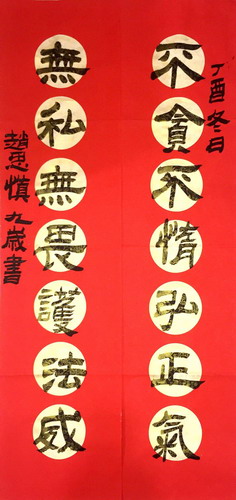 丁酉冬日
不貪不惰弘正氣
無私無畏護法威
趙思慎九歲書